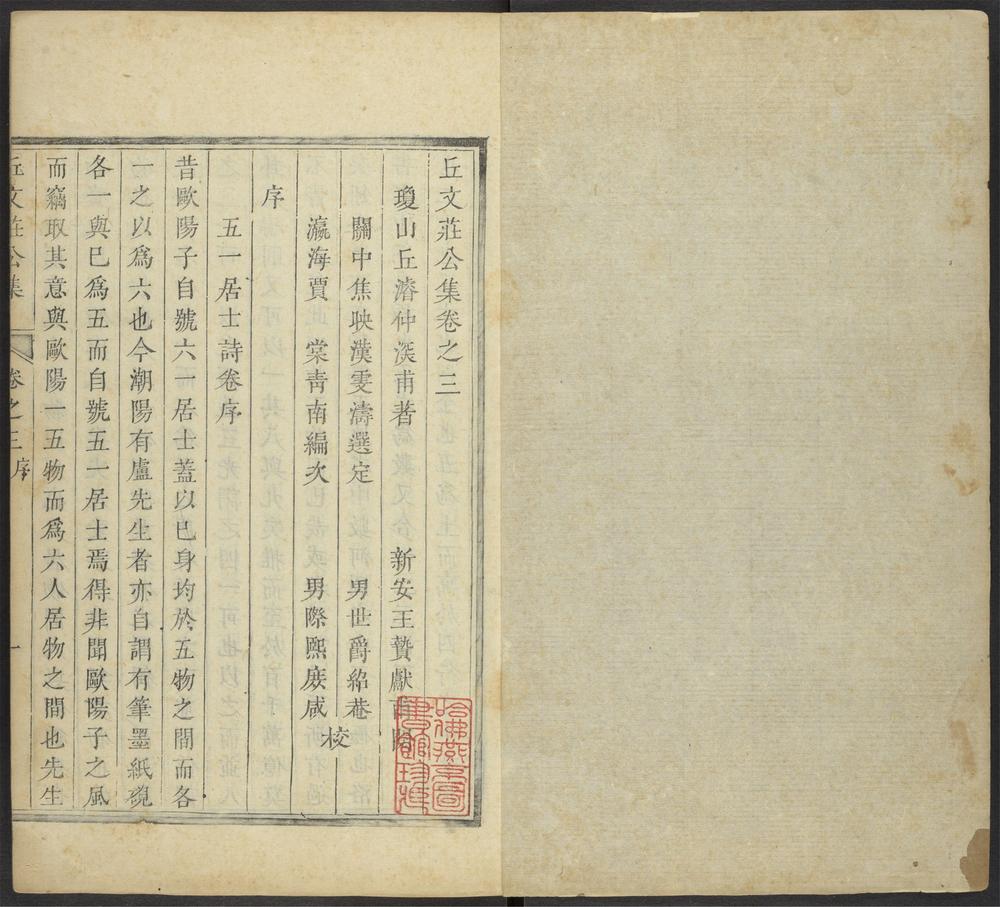 丘文莊公集卷之三
瓊山丘濬仲深甫著 新安王贊獻甫
關中焦映漢雯濤選定 男世爵紹菴
瀛海賈棠青南編次 男際熙庻咸
校
序
五一居士詩卷序
昔歐陽子自號六一居士蓋以已身均於五物之間而各
一之以爲六也今潮陽有盧先生者亦自謂有筆墨紙硯
各一與巳爲五而自號五一居士焉得非聞歐陽子之風
而竊取其意與歐陽一五物而爲六人居物之間也先生
丘文莊公集 卷之三 序 一
哈佛燕京圖
書館珍藏